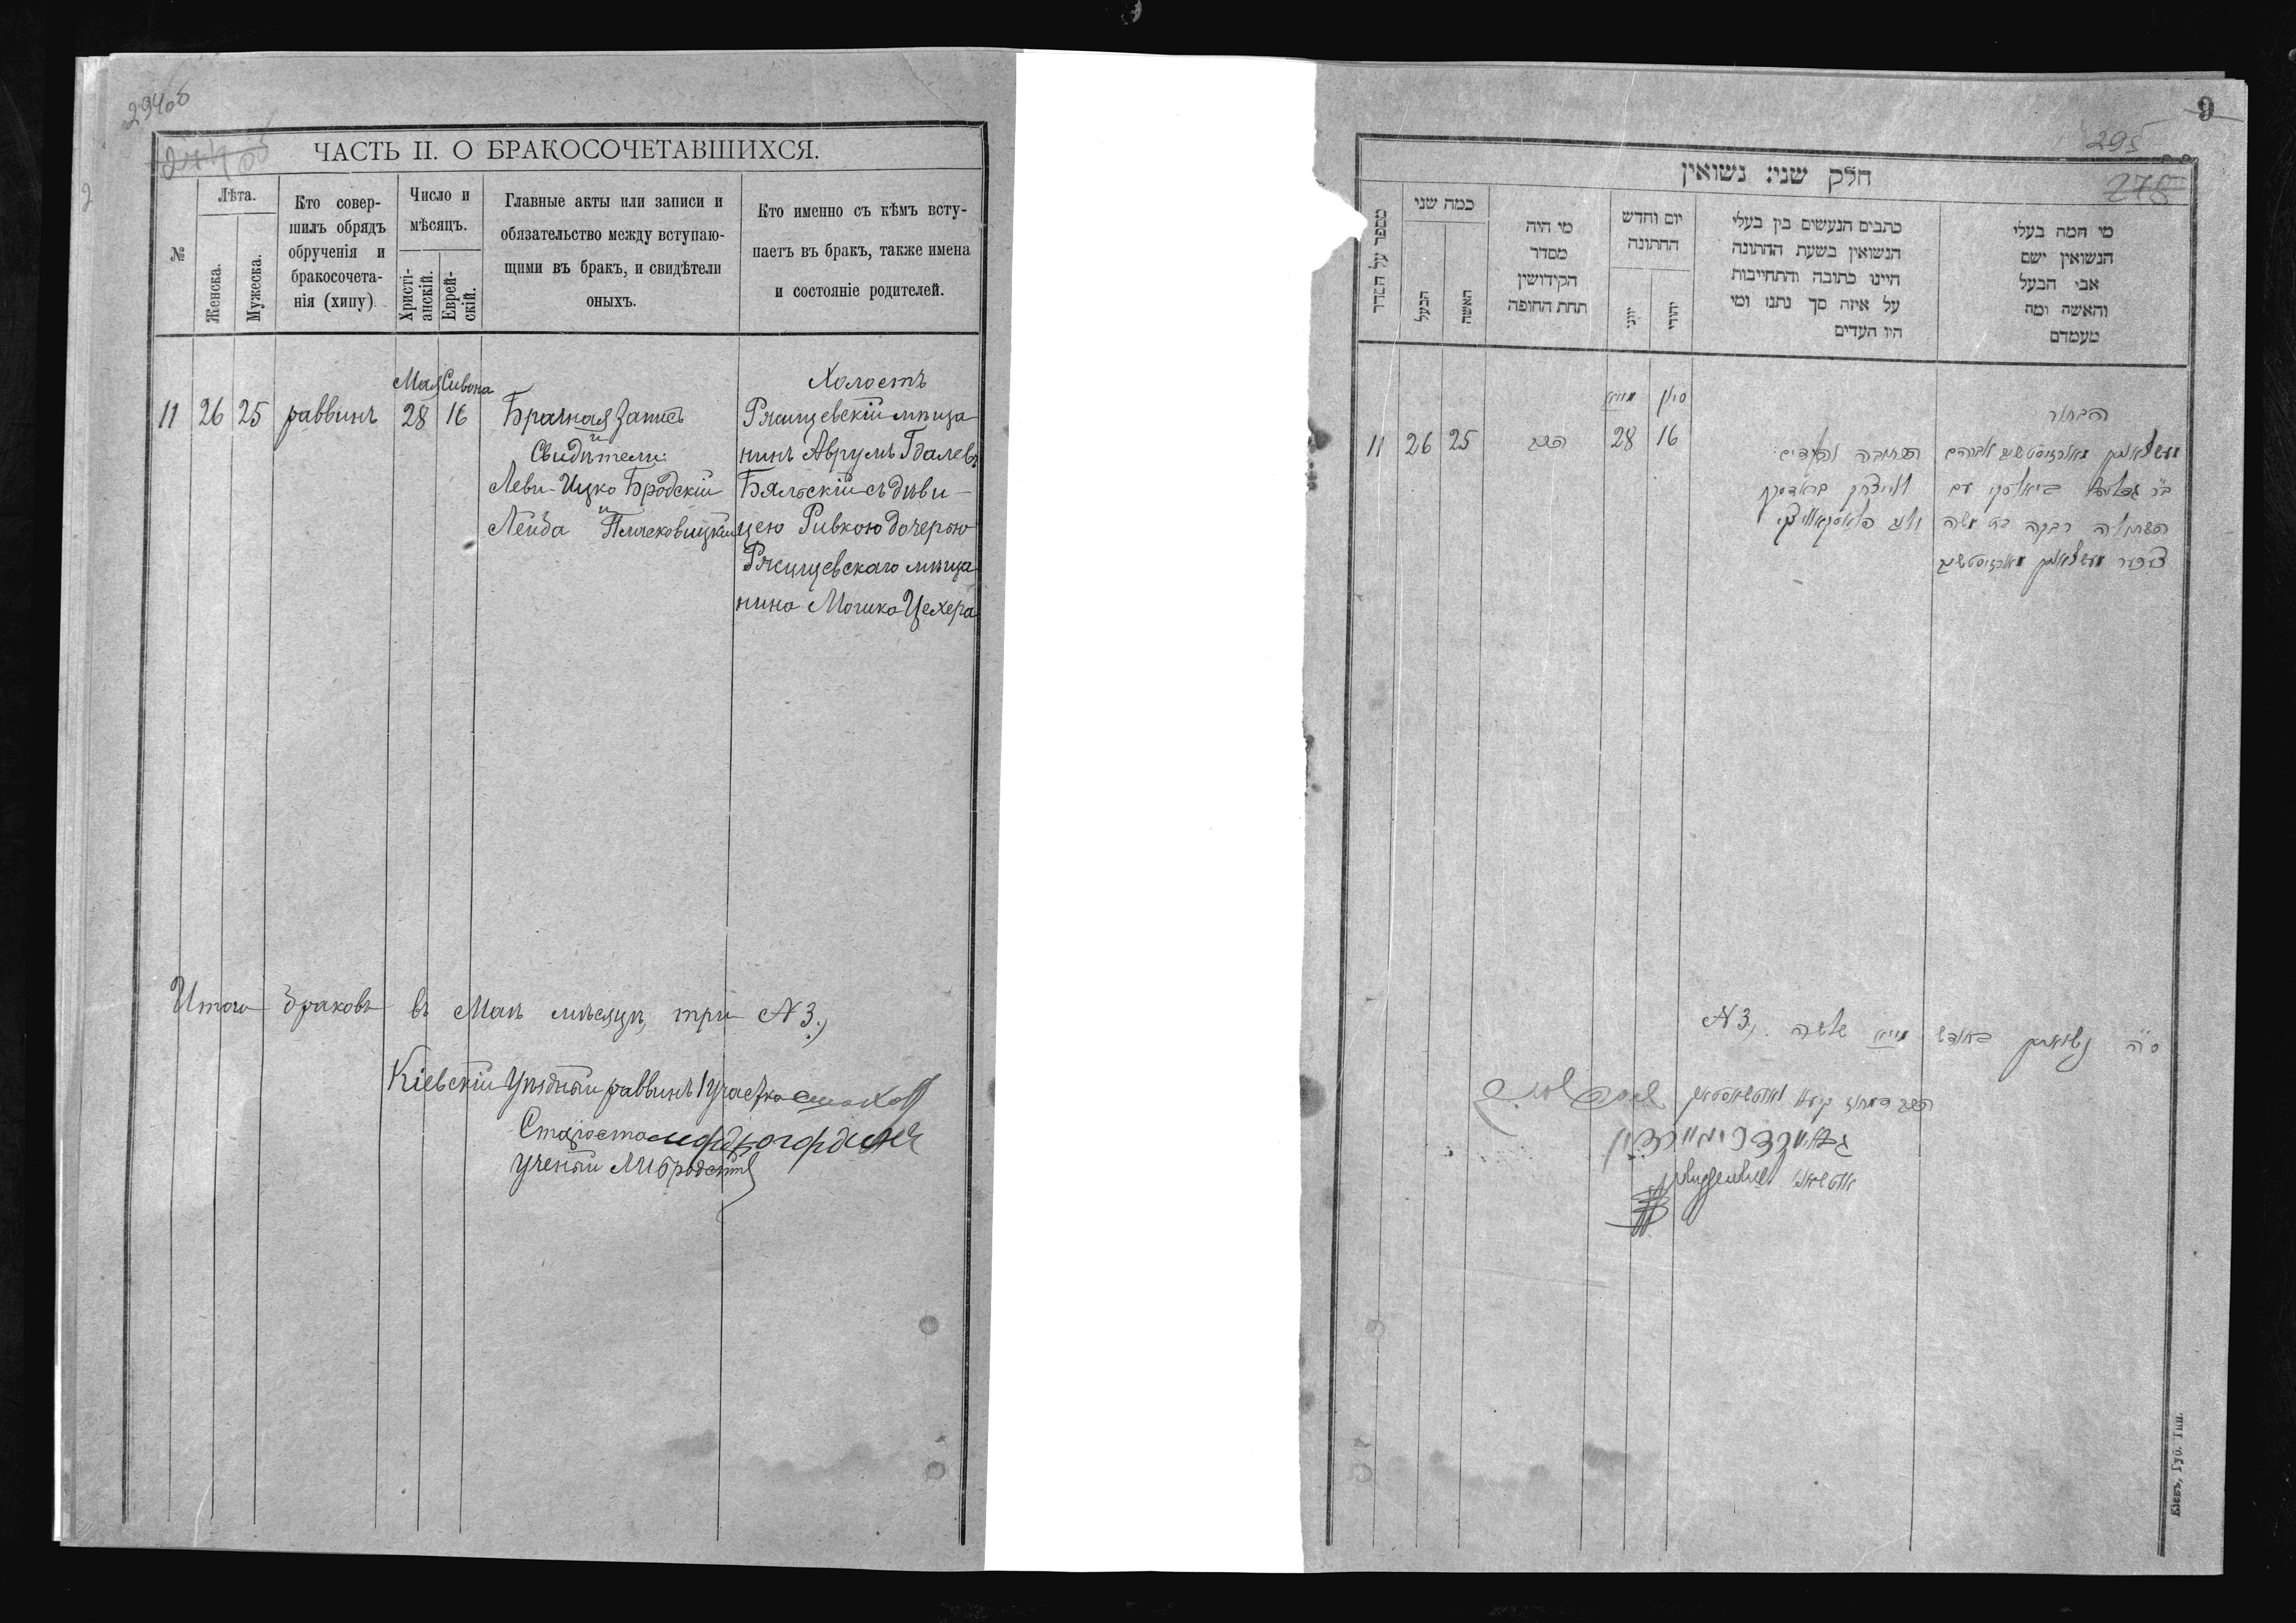 294об
ЧАСТЬ II. О БРАКОСОЧЕТАВШИХСЯ.
№
Лѣта.
Женска.
Мужеска.
Кто совер-
шилъ обрядъ
обрученія и
бракосочета-
нія (хипу)
Число и
мѣсяцъ.
Христі-
анскій.
Еврей-
скій.
Главные акты или записи и
обязательство между вступаю-
щими въ бракъ, и свидѣтели
оныхъ.
Кто именно съ кѣмъ всту-
паетъ въ бракъ, также имена
и состояніе родителей.
11
26
25
раввинъ
Мая
28
Сивона
16
Брачная Запись
и
Свидѣтели:
Леви-Ицко Бродскій
и
Лейба
Холостъ
Ржищевскій мѣща
нинъ Аврумъ Гдалевъ
Бяльскій съ дѣви-
цею Ривкою дочерью
Ржищевскаго мѣща
нина Мошко Цехера
Итого браковъ въ Маѣ мѣсяцѣ три N 3.
Кіевскій Уѣздный раввинъ 1 участка
Староста
Ученый Л И Бродскій
9
295
275
חלק שני: נשואין
מספר על הסדר
כמה שני
הבעל
האשה
מי היה
מסדר
הקידושין
תחת החופה
יום וחדש
החתונה
יוני
יהודי
כתבים הנעשים בין בעלי
הנשואין בשעת החתונה
היינו כתובה והתחייבות
על איזה סך נתנו ומי
היו העדים
מי המה בעלי
הנשואין ושם
אבי הבעל
והאשה ומה
מעמדם
11
26
25
הרב
מייא
28
סיון
16
הכתובה והעדים
לוי יצחק בראדסקי
הבחור
אברהם
ביאלסקי עם
הבתולה רבקה בת משה
ס״ה נשואין בחודש מייא שלשה N 3.
Кіевъ, Губ. Тип.